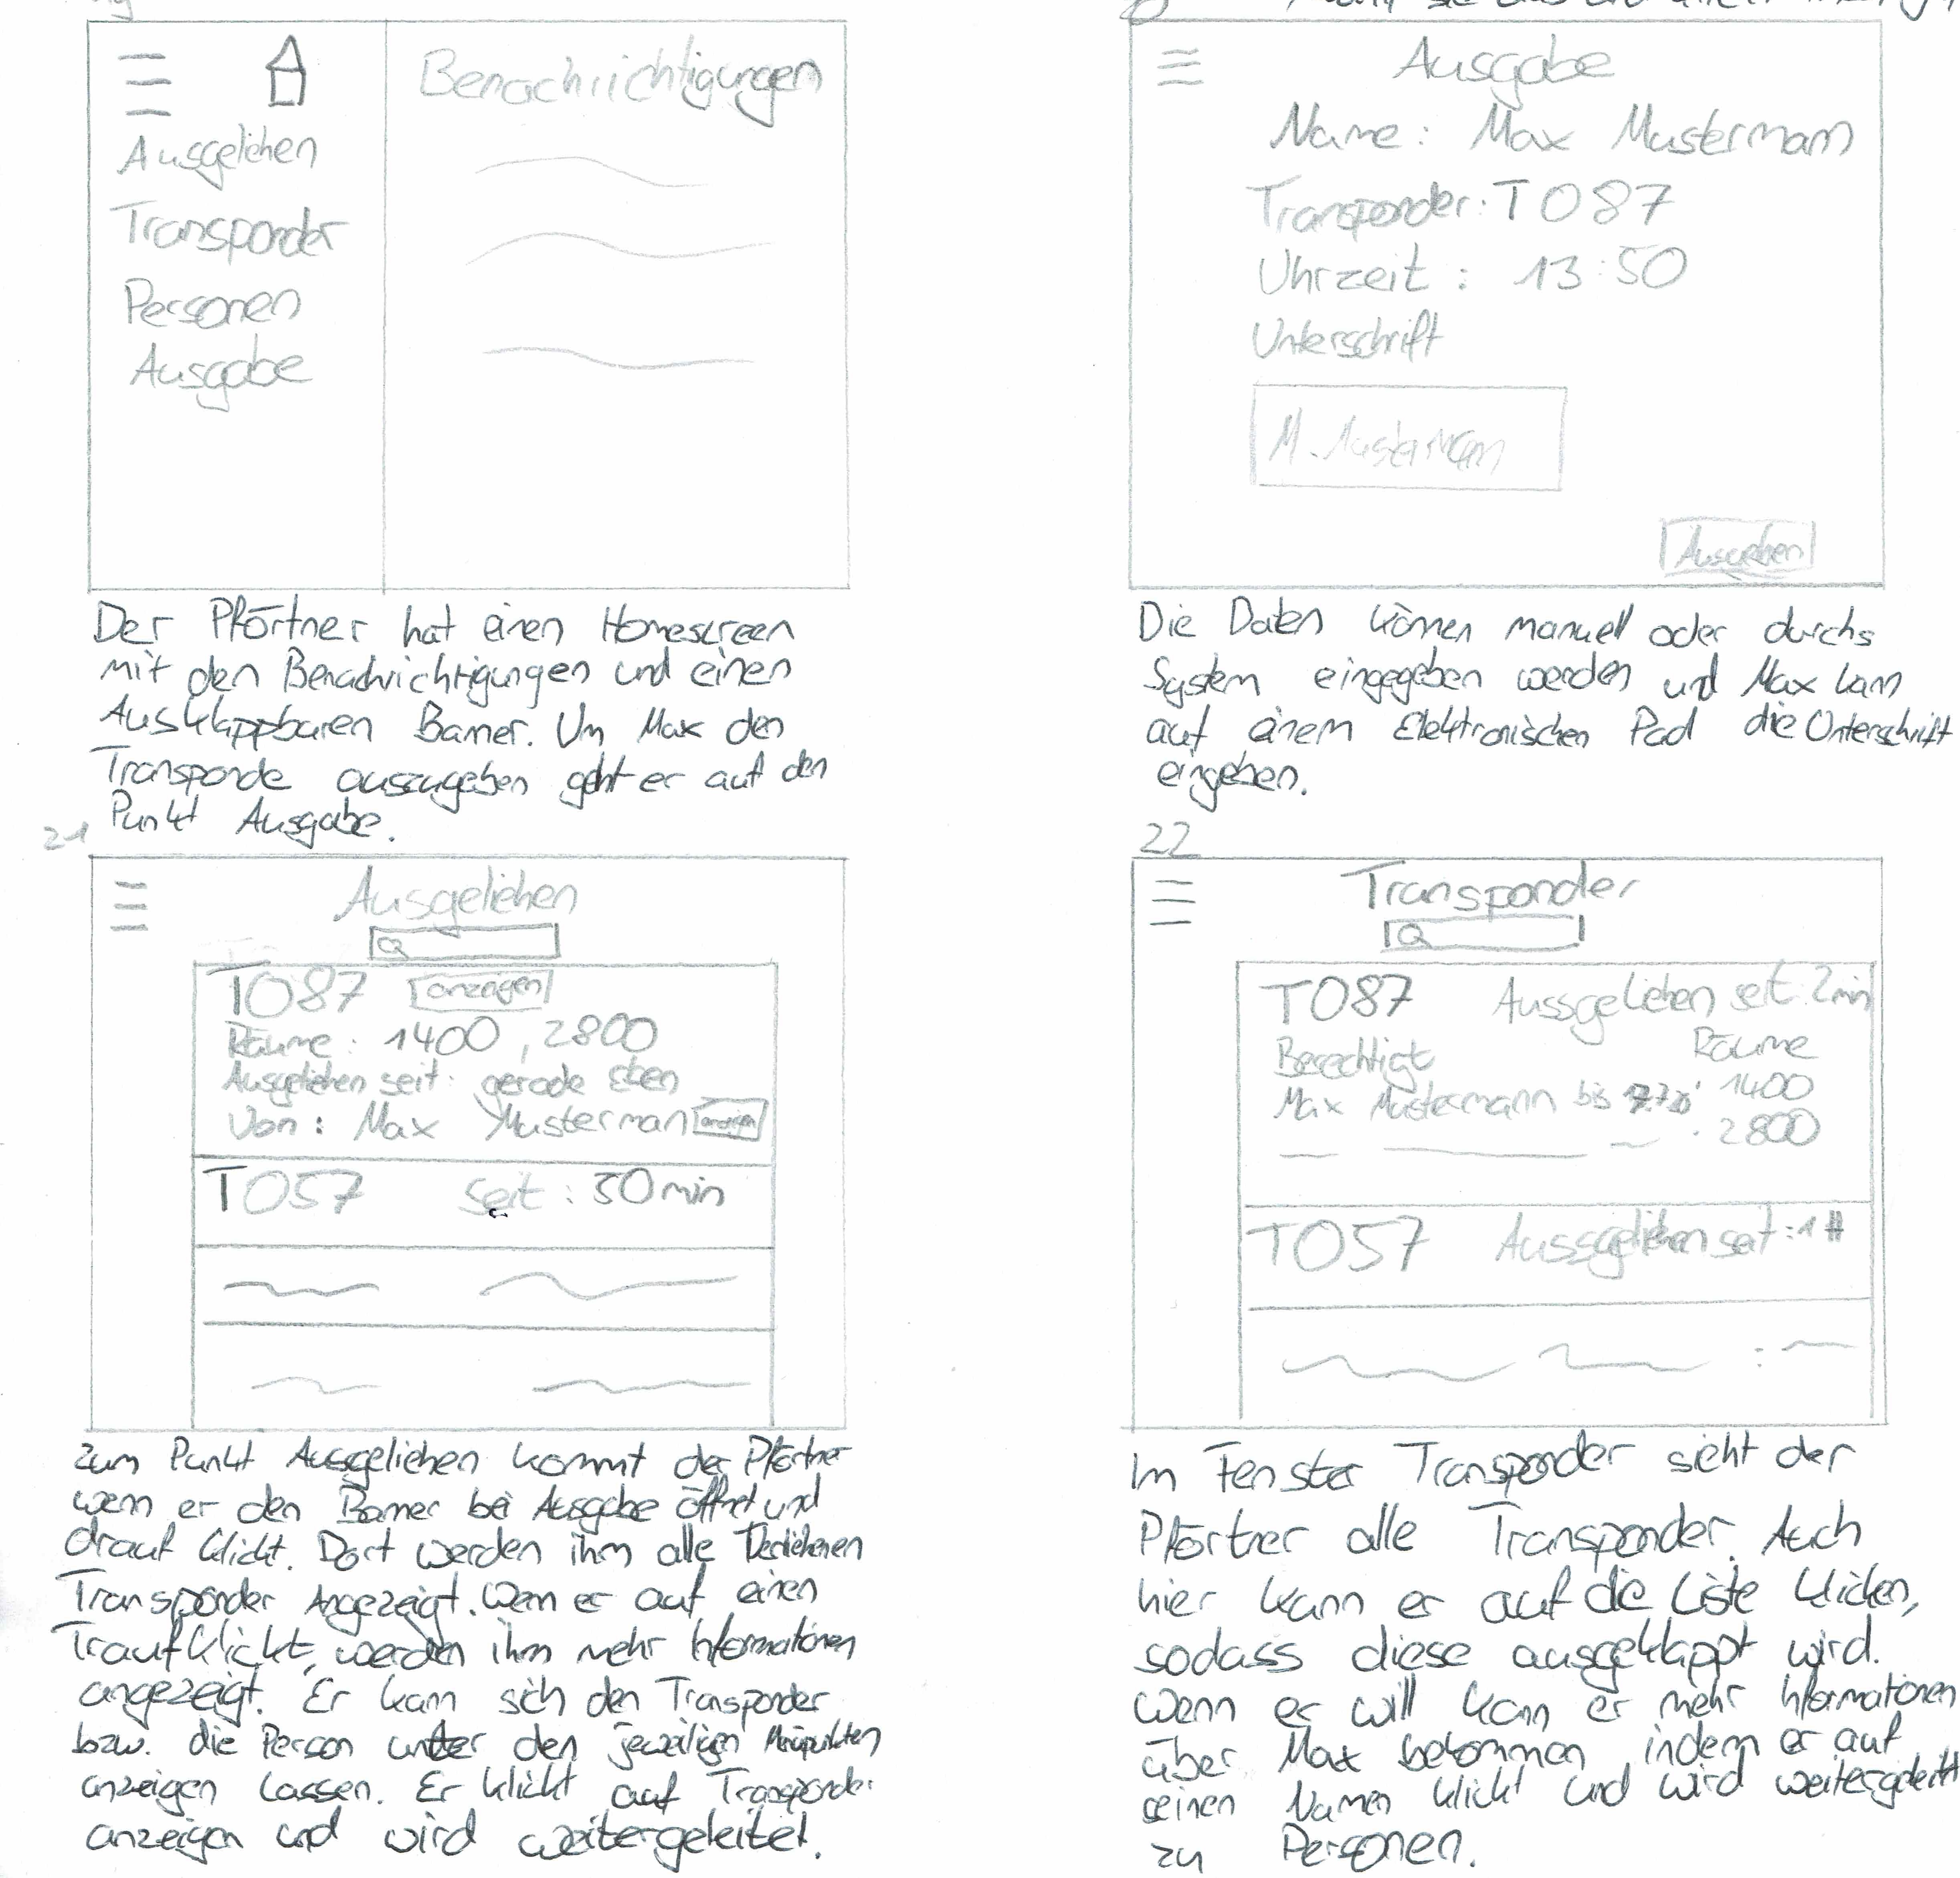 Benachrichtigungen
Ausgeliehen
Transponder
Personen
Ausgabe
Der Pförtner hat einen Homescreen
mit den Benachrichtigungen und einen
Ausklappbaren Banner. Um Max den
Transponde auszugeben geht er auf den
Punkt Ausgabe.
Ausgabe
Name: Max Mustermann
Transponder: T087
Uhrzeit : 13:50
Unterschrift
M. Musterman
Ausgeben
Die Daten können manuell oder durchs
System eingegeben werden und Max kann
auf einem Elektronischen Pad die Unterschrift
eingeben.
21
Ausgeliehen
T087 anzeigen
Räume: 1400, 2800
Ausgeliehen seit: gerade eben
Von: Max Musterman anzeigen
T057 seit: 30min
zum Punkt Ausgeliehen kommt der Pförtner
wenn er den Banner bei Ausgabe öffnet und
drauf klickt. Dort werden ihm alle Verliehenen
Transponder Angezeigt. Wenn er auf einen
Trauf klickt, werden ihm mehr Informationen
angezeigt. Er kann sich den Transponder
bzw. die Person unter den jeweiligen Menüpunkten
anzeigen lassen. Er klickt auf Transponder
anzeigen und wird weitergeleitet.
22
Transponder
T087 Aussgeliehen seit 2min
Berechtigt Räume
Max Mustermann bis 1400
2800
T057 Aussgeliehen seit: 1H
Im Fenster Transponder sieht der
Pförtner alle Transponder. Auch
hier kann er auf die Liste klicken,
sodass diese ausgeklappt wird.
Wenn er will kann er mehr Informationen
über Max bekommen indem er auf
seinen Namen klickt und wird weitergeleitet
zu Personen.